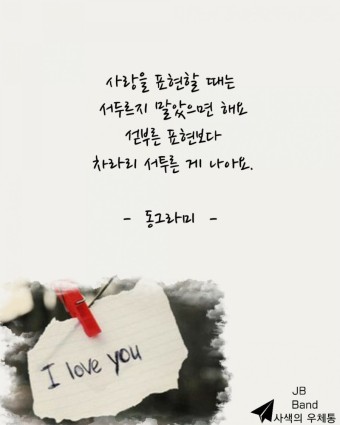 사랑을 표현할 때는
서두르지 말았으면 해요
섣부른 표현보다
차라리 서투른 게 나아요.
- 동그라미 -
I love you
JB
Band
사색의 우체통